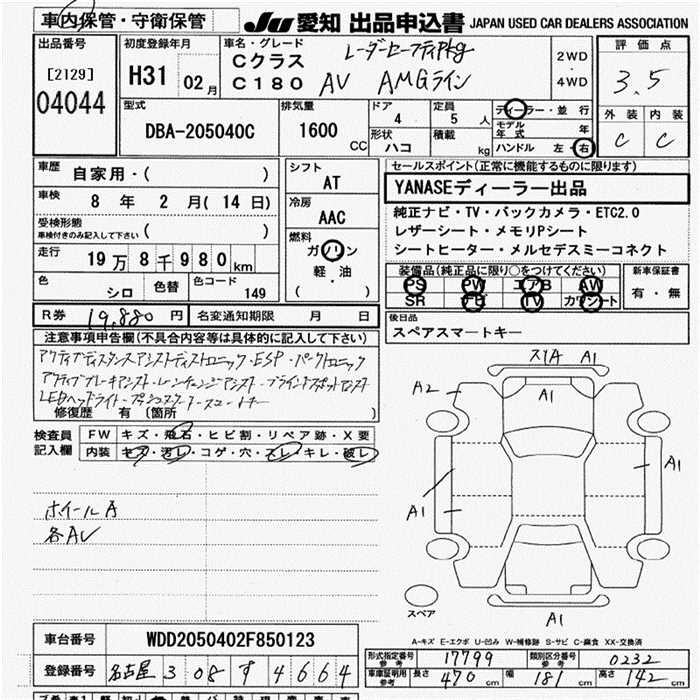 車内保管・守衛保管
JU 愛知 出品申込書 JAPAN USED CAR DEALERS ASSOCIATION
出品番号
[2129]
04044
初度登録年月
H31 02月
車名・グレード
Cクラス レーダーセーフティPkg
C180 AV AMGライン
2WD
・
4WD
評価点
3.5
外装 内装
C C
型式
DBA-205040C
排気量
1600 CC
ドア
4
形状
ハコ
定員
5 人
積載
kg
ディーラー・並行
モデル年式 年
ハンドル 左・右
車歴
自家用・( )
車検
8 年 2 月(14日)
受検形態
車検付きのみ記入して下さい ( )
走行
19万8千980km
色
シロ
色替
色コード
149
シフト
AT
冷房
AAC
燃料
ガソリン
軽・油
( )
セールスポイント(正常に機能するものに限ります)
YANASEディーラー出品
純正ナビ・TV・バックカメラ・ETC2.0
レザーシート・メモリPシート
シートヒーター・メルセデスミーコネクト
装備品(純正品に限り○をつけてください)
PS PW エアB AW
SR ナビ TV カワシート
新車保証書
有・無
R券 19,880 円 名変通知期限 月 日
後日品
スペアスマートキー
注意事項申告欄(不具合内容等は具体的に記入して下さい)
アクティブディスタンスアシストディストロニック・ESP・パークトロニック
アクティブブレーキアシスト・レーンチェンジアシスト・ブラインドスポットアシスト
LEDヘッドライト
修復歴 有 (箇所 )
検査員
記入欄
FW キズ・飛石・ヒビ割・リペア跡・X要
内装 キズ・汚レ・コゲ・穴・スレ・キレ・破レ
ホイールA
各AV
スリA A1
A2 A1
A1
A1
A1
スペア
A-キズ E-エクボ U-凹み W-補修跡 S-サビ C-腐食 XX-交換済
車台番号 WDD2050402F850123
登録番号 名古屋 308 す 4664
形式指定番号 参考 17799 類別区分番号 参考 0232
車庫証明用 参考 長さ 470cm 幅 181cm 高さ 142cm